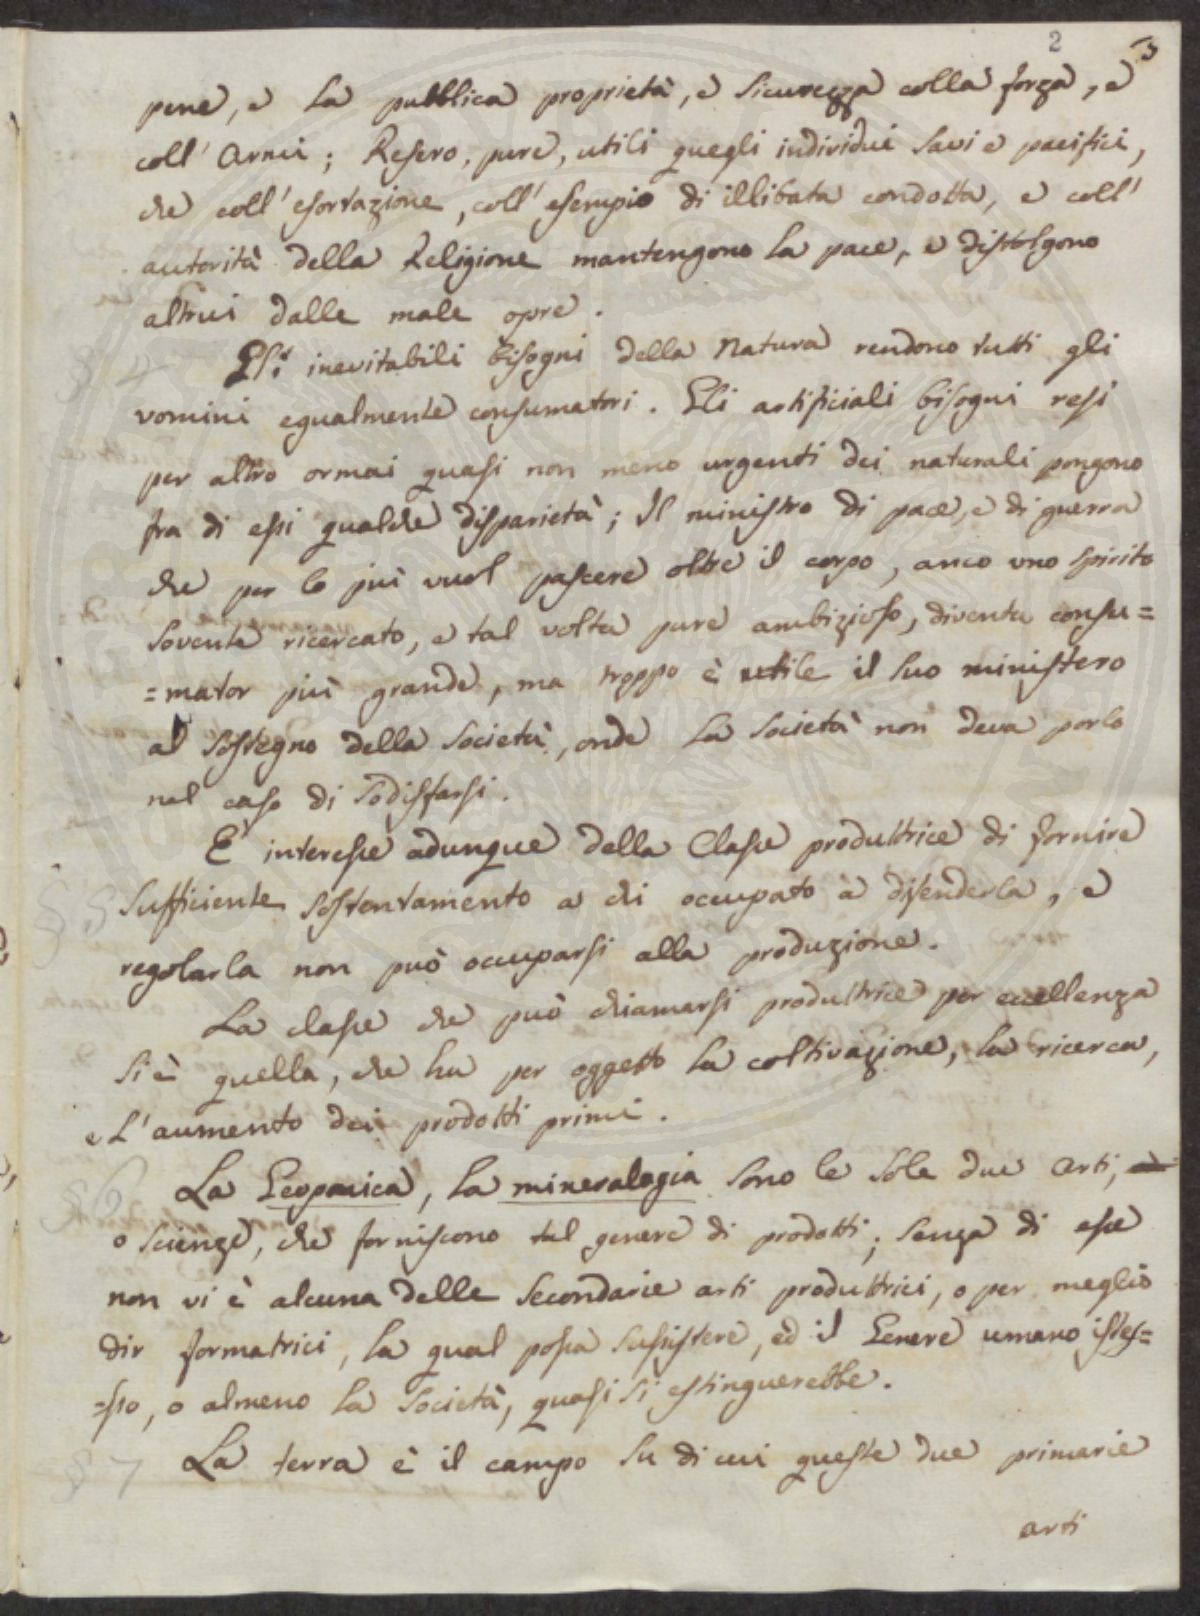 2 3
pene, e la pubblica proprietà, e sicurezza colla forza, e
coll' Armi; Resero, pure, utili quegli individui savi e pacifici,
che coll' esortazione, coll' esempio di illibata condotta, e coll'
autorità della Religione mantengono la pace, e distolgono
altrui dalle male opre.
§ 4 Gl' inevitabili bisogni della Natura rendono tutti gli
uomini egualmente consumatori. Gli artificiali bisogni resi
per altro ormai quasi non meno urgenti dei naturali pongono
fra di essi qualche disparietà; Il ministro di pace, e di guerra
che per lo più vuol pascere oltre il corpo, anco uno spirito
sovente ricercato, e tal volta pure ambizioso, diventa consu=
=mator più grande, ma troppo è utile il suo ministero
al sostegno della società, onde la società non deva porlo
nel caso di sodisfarsi.
E' interesse adunque della Classe produttrice di fornire
§ 5 sufficiente sostentamento a chi occupato a difenderla, e
regolarla non può occuparsi alla produzione.
La classe che può chiamarsi produttrice per eccellenza
si è quella, che ha per oggetto la coltivazione, la ricerca,
e l'aumento dei prodotti primi.
§ 6 La Geoponica, la mineralogia sono le sole due arti,
o scienze, che forniscono tal genere di prodotti; senza di esse
non vi è alcuna delle secondarie arti produttrici, o per meglio
dir formatrici, la qual possa sussistere, ed il Genere umano istes=
=so, o almeno la società, quasi si estinguerebbe.
§ 7 La terra è il campo su di cui queste due primarie
arti